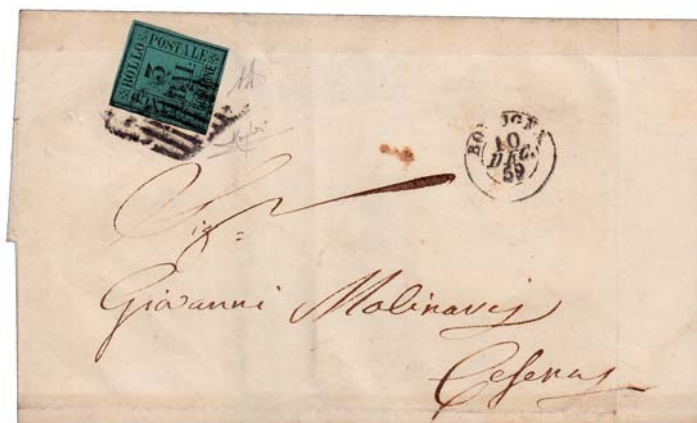 BOLLO
POSTALE
3
BAI
BOLOGNA
10
DEC.
59
Sig.
Giovanni Molinaris
Cesena